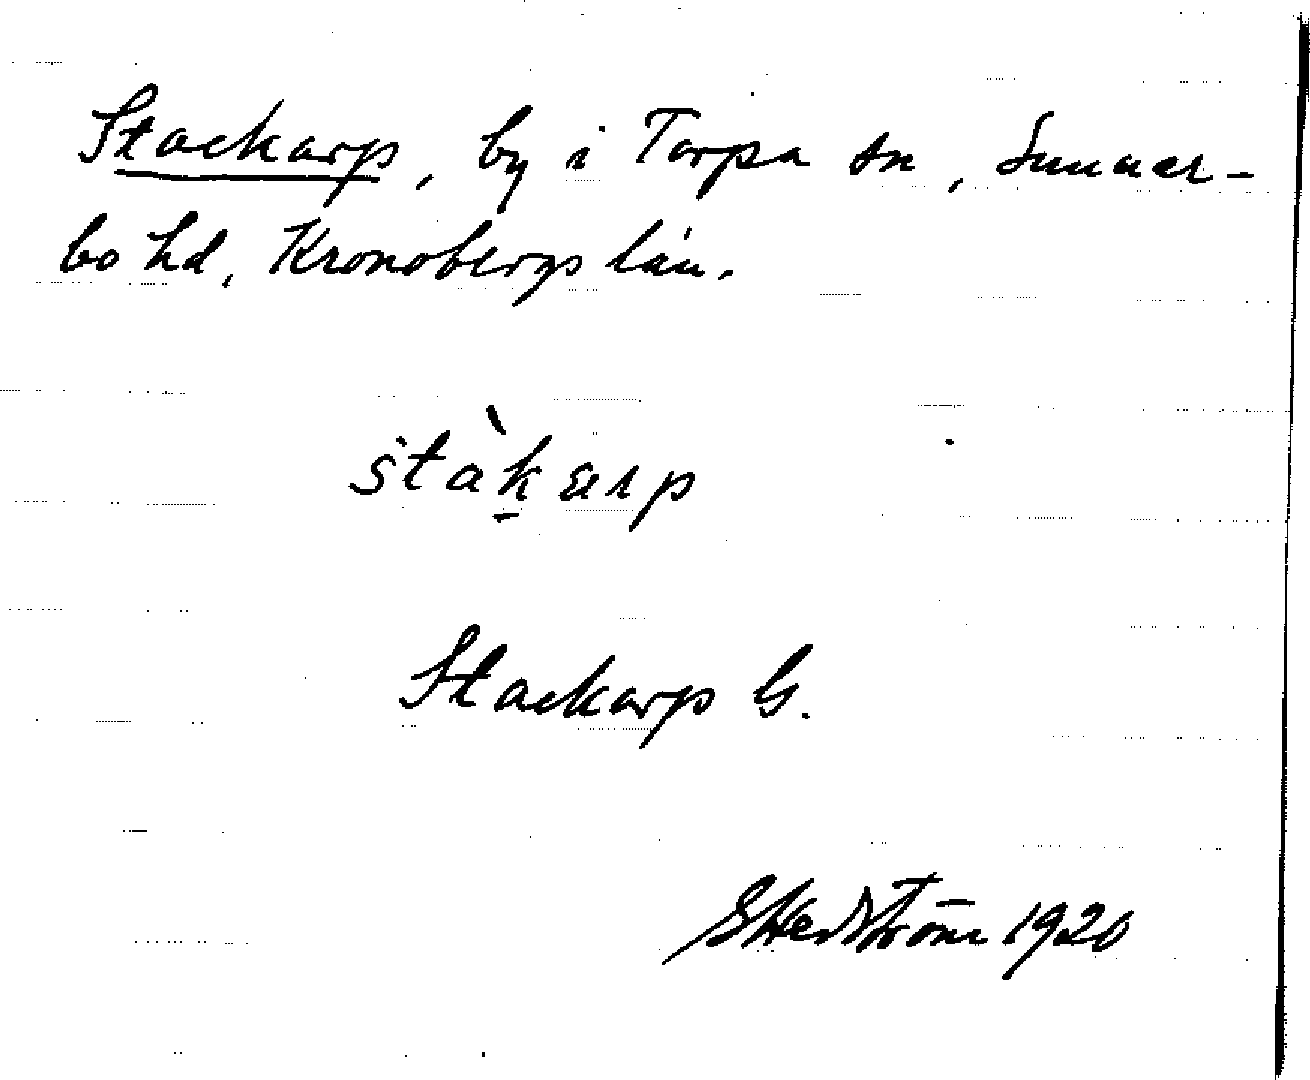 Stackarp, by i Torpa sn, Sunner-
bo hd, Kronobergs län.
stàkarp
Stackarp G.
G Hedström 1920